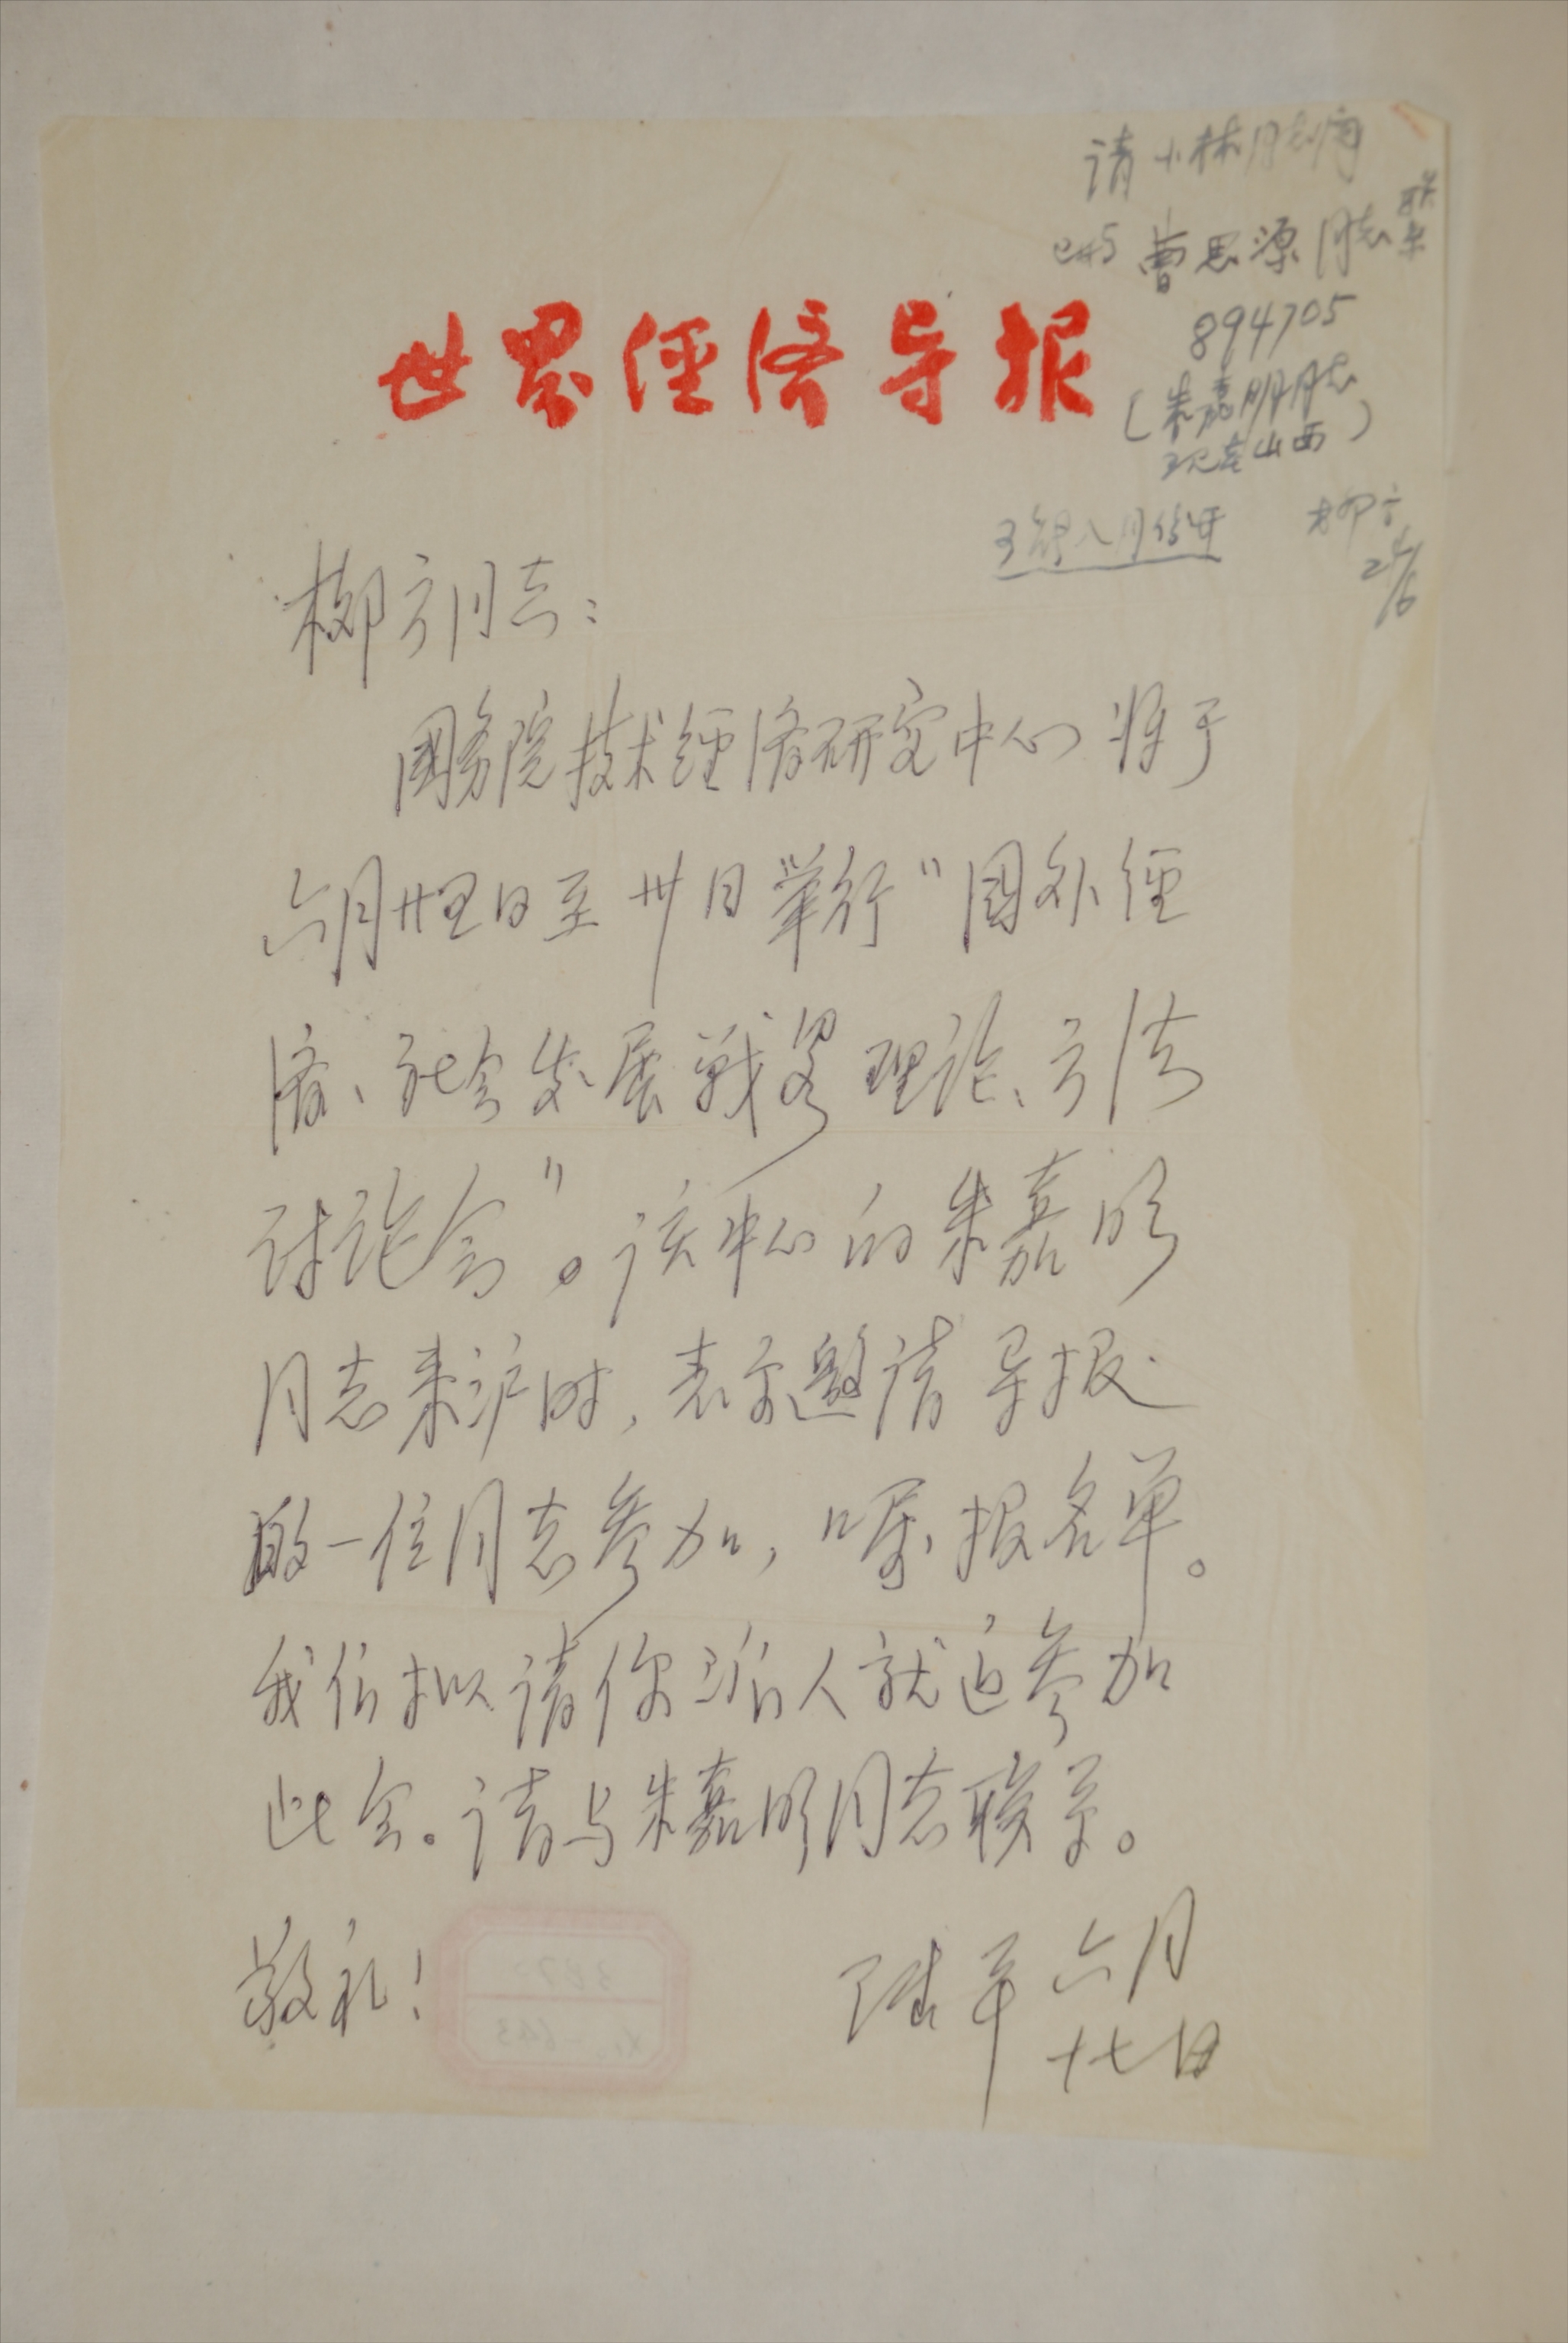 请小林同志阅
已与曹思源同志联系
894705
(朱嘉明同志
现在山西)
可能八月份开
柳方
24/6
世界经济导报
柳方同志:
国务院技术经济研究中心将于
六月廿四日至卅日举行"国外经
济、社会发展战略理论、方法
讨论会"。该中心的朱嘉明
同志来沪时,表示邀请导报
的一位同志参加,嘱报名单。
我们拟请你派人就近参加
此会。请与朱嘉明同志联系。
敬礼!
陆平 六月
十七日